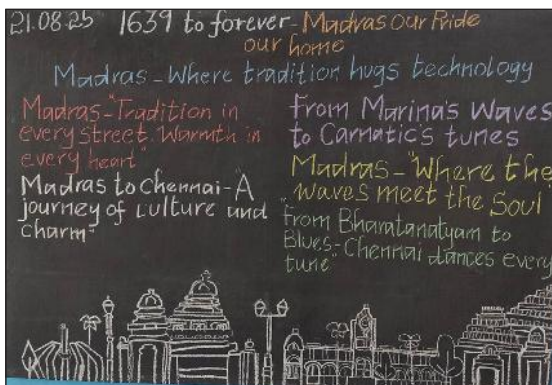 21.08.25
1639 to forever - Madras our Pride
our home
Madras - Where tradition hugs technology
Madras - "Tradition in
every street, Warmth in
every heart"
Madras to Chennai - A
journey of culture and
charm"
From Marina's Waves
to Carnatic's tunes
Madras - "Where the
waves meet the Soul
"from Bharatanatyam to
Blues - Chennai dances every
tune"